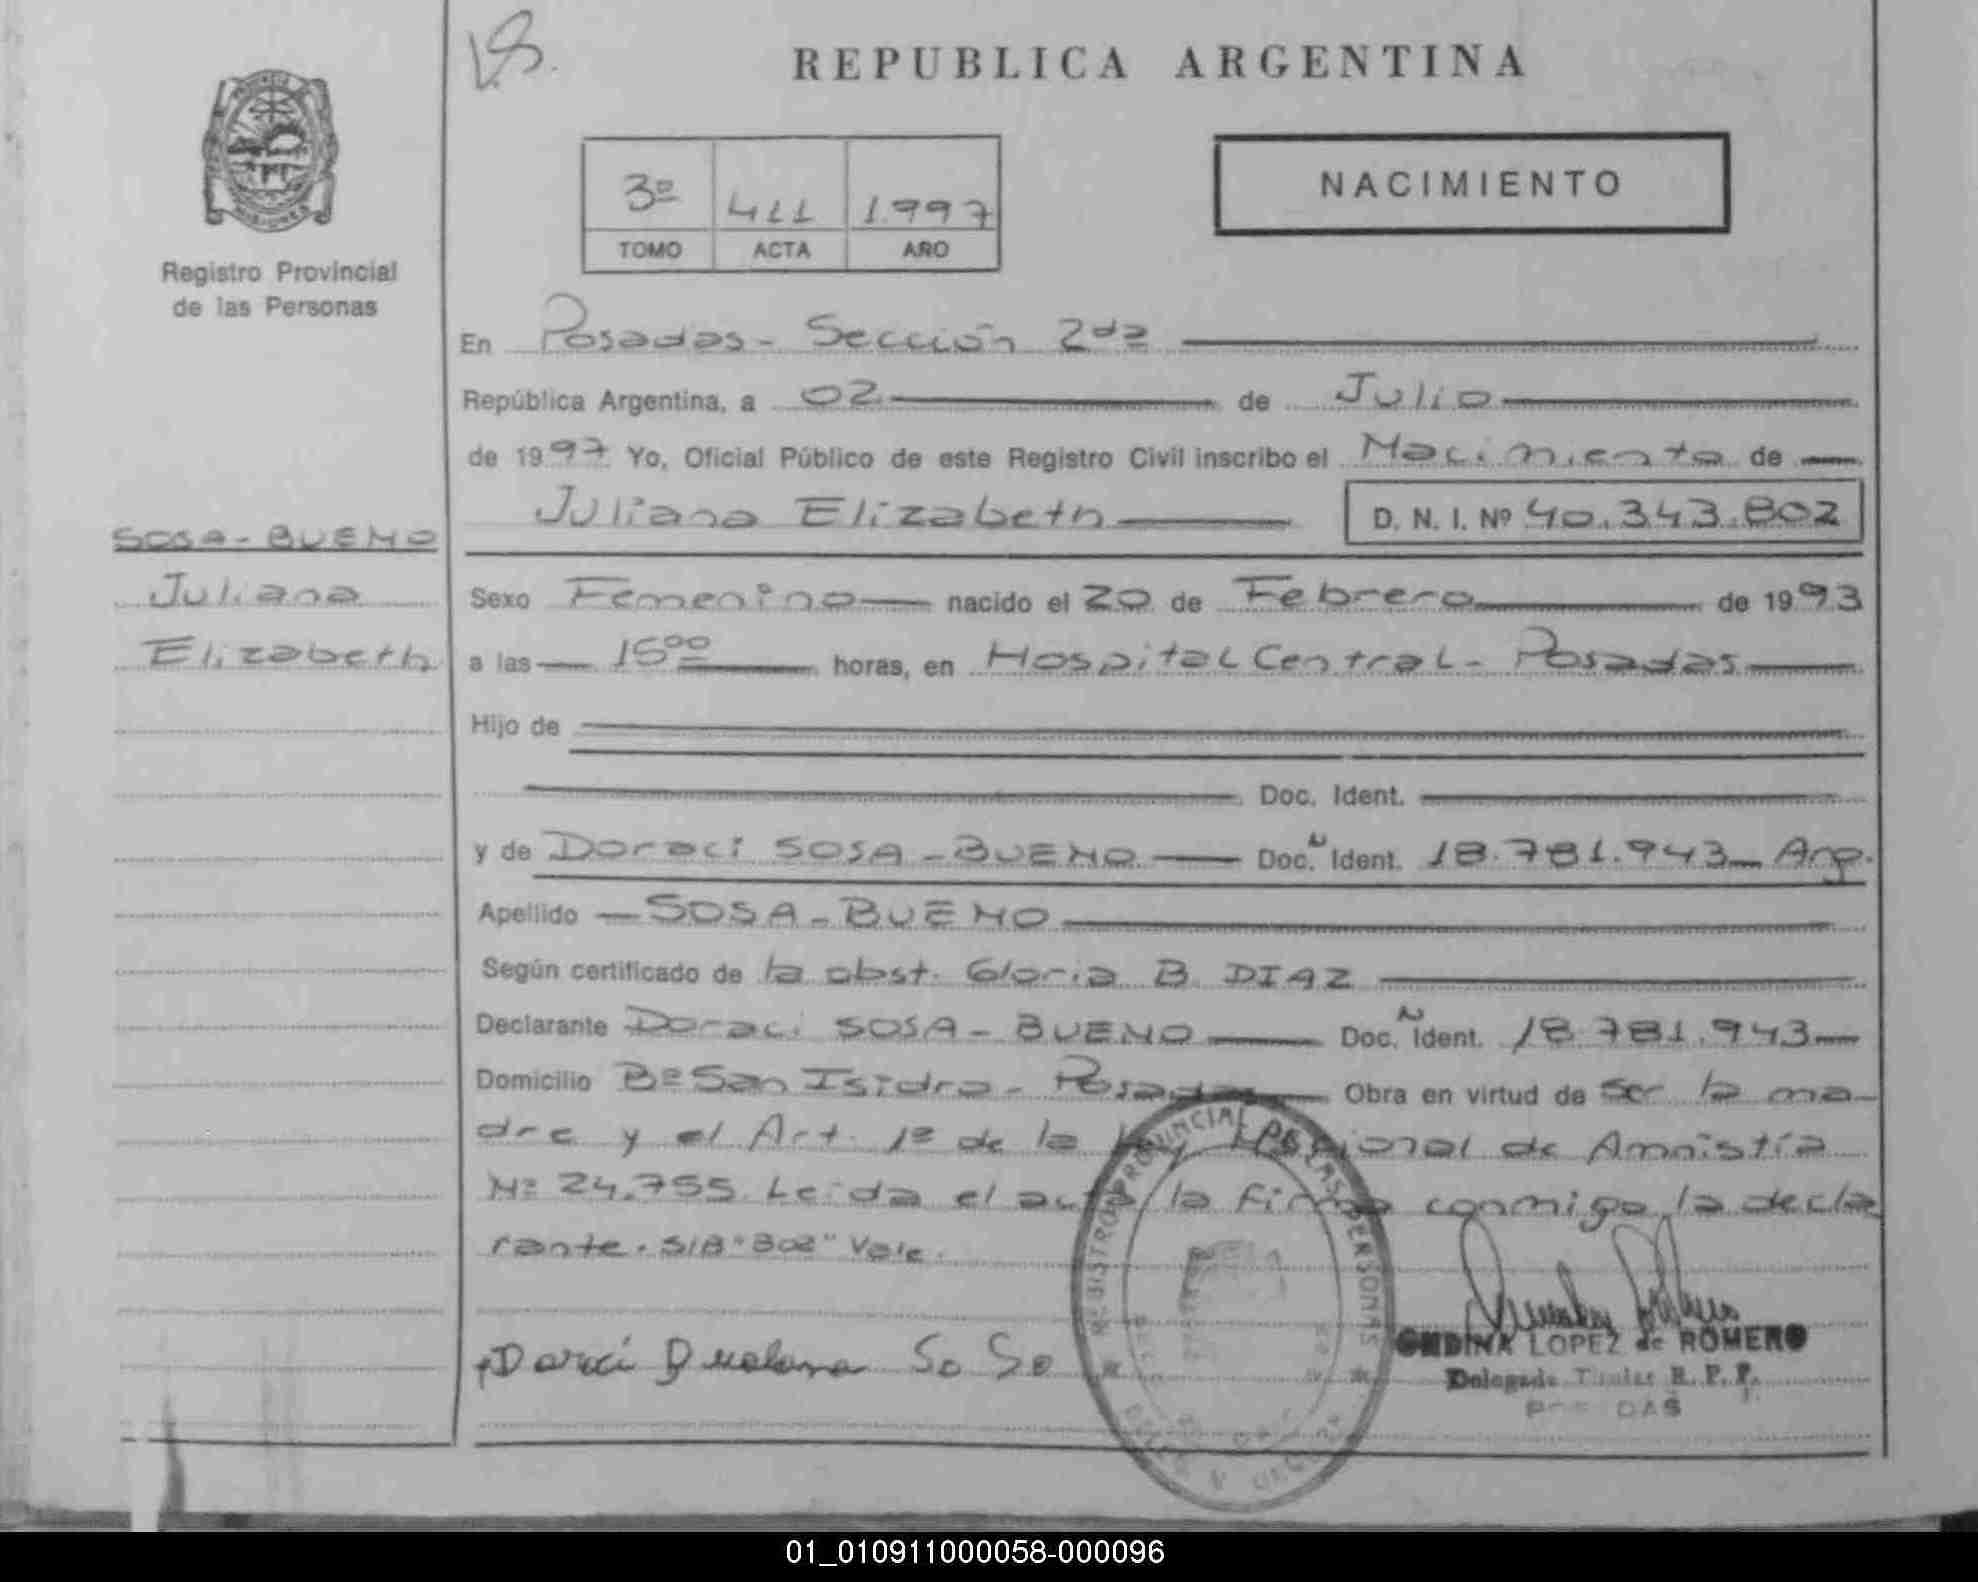 REPUBLICA ARGENTINA
Registro Provincial
de las Personas
3º 411 1.997
TOMO ACTA AÑO
NACIMIENTO
En Posadas - Sección 2da
República Argentina, a 02 de Julio
de 1997 Yo, Oficial Público de este Registro Civil inscribo el Nacimiento de
Juliana Elizabeth D. N. I. Nº 40.343.802
SOSA - BUENO
Juliana
Elizabeth
Sexo Femenino nacido el 20 de Febrero de 1993
a las 1500 horas, en Hospital Central - Posadas
Hijo de
Doc. Ident.
y de Doraci SOSA - BUENO Doc. N Ident. 18.781.943 Arg.
Apellido SOSA - BUENO
Según certificado de la obst. Gloria B. DIAZ
Declarante Doraci SOSA - BUENO Doc. N Ident. 18.781.943
Domicilio Bº San Isidro - Posadas Obra en virtud de ser la ma-
dre y el Art. 1º de la de Amnistía
Nº 24.755. Leida el acta la firma conmigo la decla
rante. S/B "802" Vale.
So So
REGISTRO PROVINCIAL DE LAS PERSONAS
LOPEZ de ROMERO
Delegada Titular R. P. P.
01_010911000058-000096